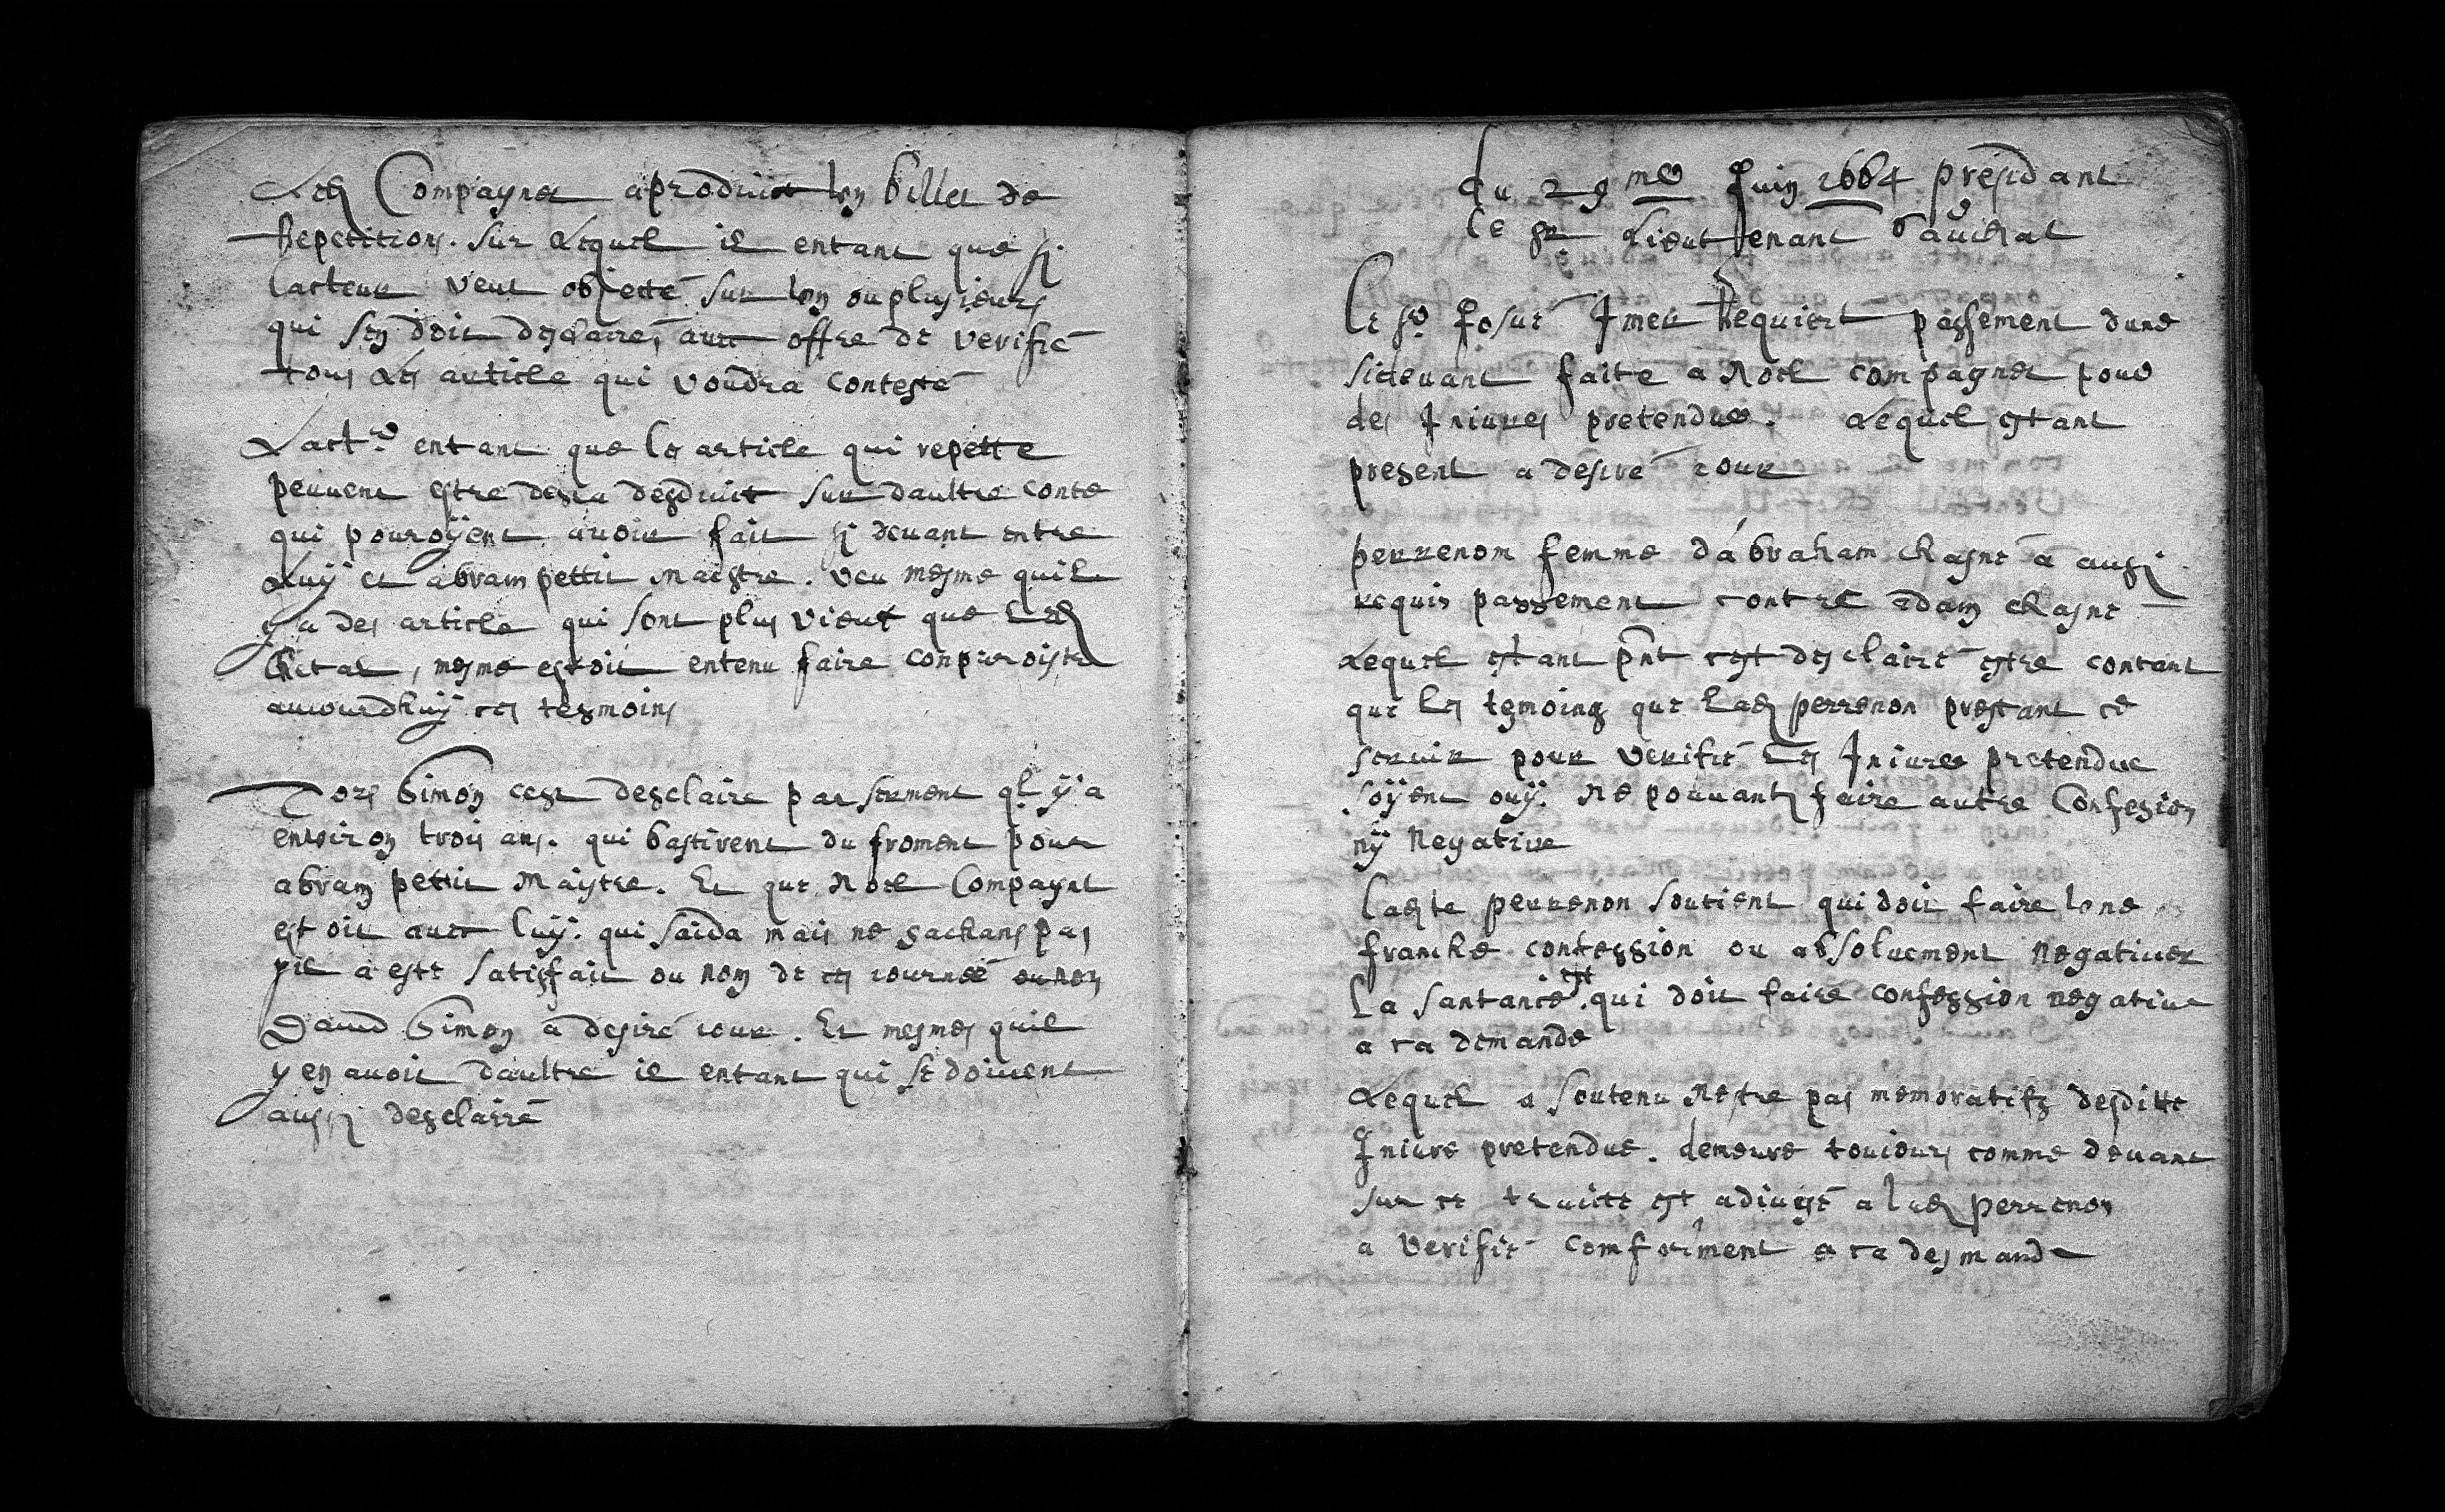 Led Compagnet a produict vng billet de
Repetitions. sur Lequel il entant que sy
lacteur veut objecté sur vng ou plusieurs
qui sen doit desclairé, auec offre de verifié
tous Les article qui voudra contesté
Lactr entant que le article qui repette
peuuent estre desia desduict sur daultre conte
qui pouroyent auoir fait sy deuant entre
Luy et abram pettit maistre. veu mesme quil
y a des article qui sont plus vieux que led
Chetal, mesme estoit entenu faire comparoistre
auiourdhuy ces tesmoins
Tors Simon cest desclaire par serment ql y a
environ trois ans. qui bastirent du froment pour
abram pettit Maistre. Et que Noel Compagnet
estoit auec luy. qui saida mais ne sachans pas
sil a este satisfait ou non de ces iournéé ou non
Dauid Simon a desiré iour. Et mesmes quil
y en auoit daultre il entant qui se doiuent
aussy desclairé
du 29me Juin 1664 presidant
le sr Lieuttenant vauchat
Le sr Josué Imer Requiert passement dune
sideuant faite a Noel compagnet pour
des Iniures pretendue. Lequel estant
present a desiré iour
perrenom femme dábraham chasné a aussy
requis passement contre adam chasne
Lequel estant pnt cest desclairé estre contant
que les temoing que lad perrenon prestant ce
seruir pour verifié les Iniures pretendue
soyent ouy. ne pouuants faire autre Confession
ny Negative
ladte perrenon soutient qui doit faire vne
franche confession ou absoluement negatiuer
La santance est qui doit faire confession negatiue
a ca demande
Lequel a soutenu nestre pas memoratifz desditte
Iniure pretendue. demeure touiours comme deuant
sur ce traitte est adiugé a lad perrenon
a verifié comforment a ca desmande